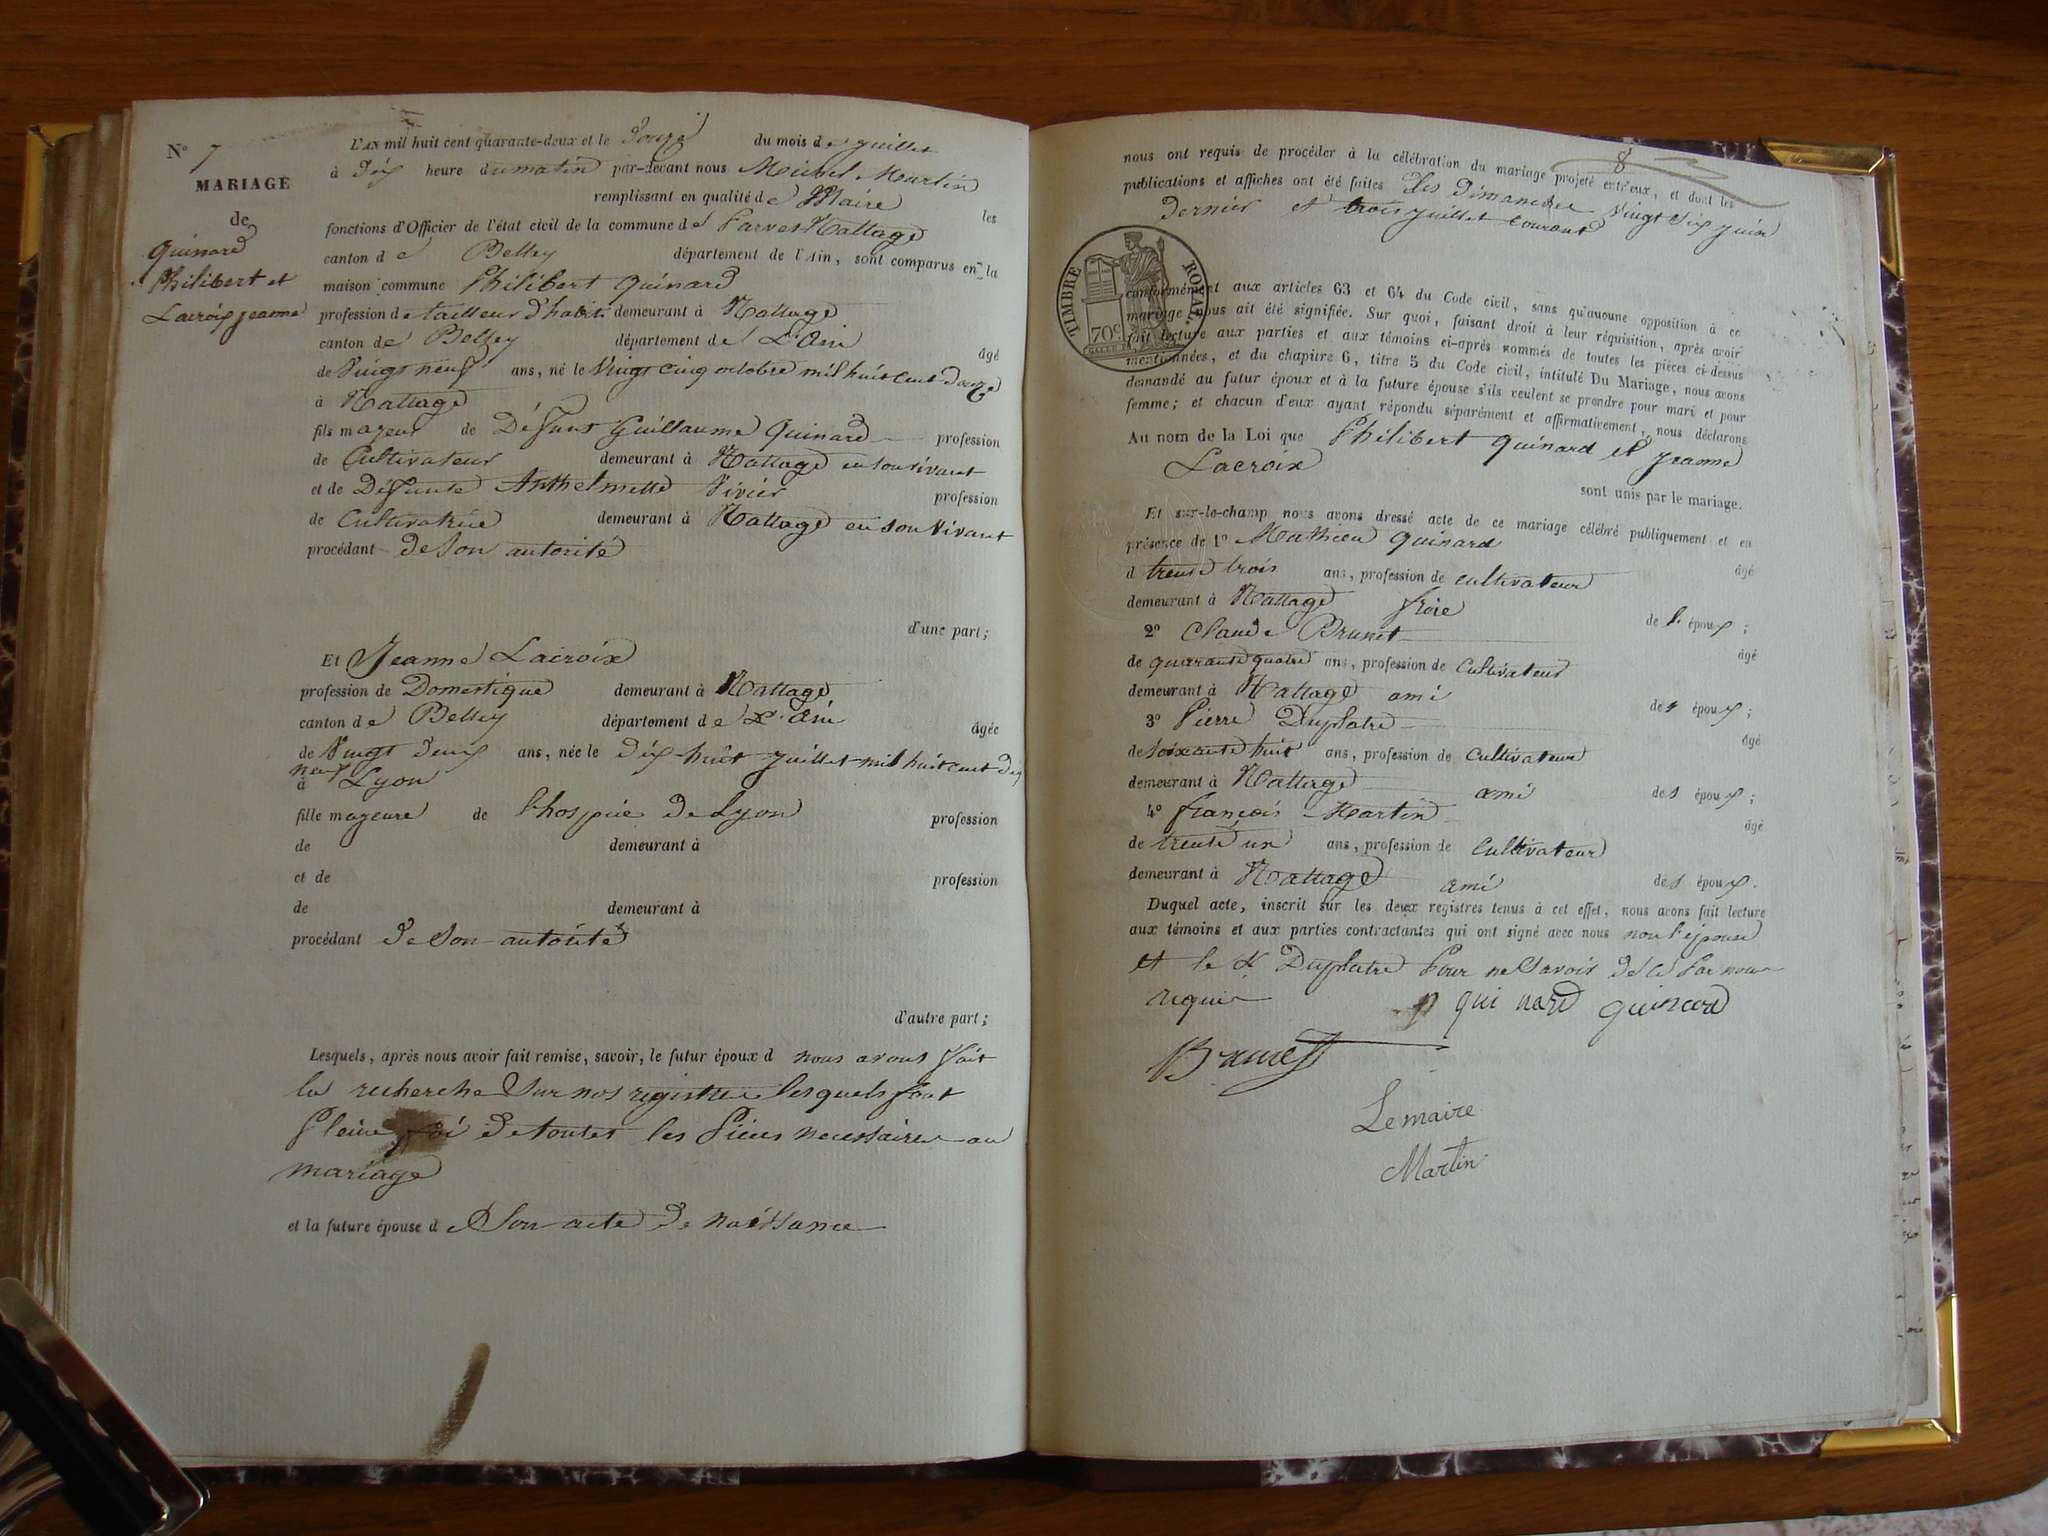 N° 7
MARIAGE
de
Quinard
Philibert et
Lacroix jeanne
L'AN mil huit cent quarante-deux et le Douze du mois de juillet
à Dix heure du matin par-devant nous Michel Martin
remplissant en qualité de Maire les
fonctions d'Officier de l'état civil de la commune de Parves Nattage
canton de Belley département de l'Ain, sont comparus en la
maison commune Philibert Quinard
profession de tailleur d'habit demeurant à Nattage
canton de Belley département de L'Ain âgé
de Vingt neuf ans, né le Vingt cinq octobre mil huit cent douze
à Nattage
fils majeur de Défunt Guillaume Quinard profession
de Cultivateur demeurant à Nattage en son vivant
et de Défunte Anthelmette Vivier profession
de Cultivatrice demeurant à Nattage en son vivant
procédant de son autorité
d'une part;
Et Jeanne Lacroix
profession de Domestique demeurant à Nattage
canton de Belley département de L'Ain âgée
de Vingt deux ans, née le dix-huit juillet mil huit cent dix
neuf
à Lyon
fille majeure de l'hospice de Lyon profession
de demeurant à
et de profession
de demeurant à
procédant de son autorité
d'autre part;
Lesquels, après nous avoir fait remise, savoir, le futur époux d nous avons fait
la recherche sur nos registre lesquels font
pleine foi de toutes les pieces necessaires au
mariage
et la future épouse de son acte de naissance
8
nous ont requis de procéder à la célébration du mariage projeté entr'eux, et dont les
publications et affiches ont été faites les dimanches vingt six juin
dernier et trois juillet courant
TIMBRE ROYAL
70c
conformément aux articles 63 et 64 du Code civil, sans qu'aucune opposition à ce
mariage nous ait été signifiée. Sur quoi, faisant droit à leur réquisition, après avoir
fait lecture aux parties et aux témoins ci-après nommés de toutes les pièces ci-dessus
mentionnées, et du chapitre 6, titre 5 du Code civil, intitulé Du Mariage, nous avons
demandé au futur époux et à la future épouse s'ils veulent se prendre pour mari et pour
femme; et chacun d'eux ayant répondu séparément et affirmativement, nous déclarons
Au nom de la Loi que Philibert Quinard et Jeanne
Lacroix
sont unis par le mariage.
Et sur-le-champ nous avons dressé acte de ce mariage célébré publiquement et en
présence de 1° Mathieu Quinard âgé
d trente trois ans, profession de cultivateur
demeurant à Nattage frère de l'époux;
2° Claude Brunet âgé
de quarante quatre ans, profession de Cultivateur
demeurant à Nattage ami des époux;
3° Pierre Duplatre âgé
de soixante huit ans, profession de Cultivateur
demeurant à Nattage ami des époux;
4° françois Martin âgé
de trente un ans, profession de Cultivateur
demeurant à Nattage ami des époux.
Duquel acte, inscrit sur les deux registres tenus à cet effet, nous avons fait lecture
aux témoins et aux parties contractantes qui ont signé avec nous non l'épouse
et le Duplatre Pour ne savoir de ce Par nous
requis
p qui nard quinard
Brunet
Lemaire
Martin